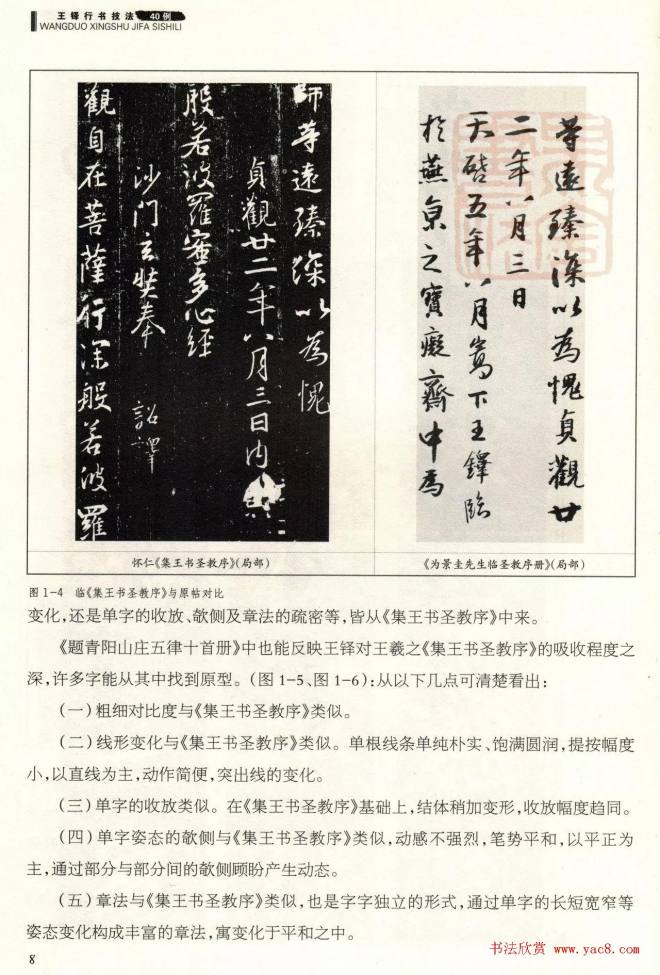 王铎行书技法 40例
WANGDUO XINGSHU JIFA SISHILI
師等遠臻深以為愧
貞觀廿二年八月三日内
般若波羅蜜多心經
沙門玄奘奉 詔譯
觀自在菩薩行深般若波羅
等遠臻深以為愧貞觀廿
二年八月三日
天啓五年八月嵩下王鐸臨
於燕京之寶癡齋中為
怀仁《集王书圣教序》(局部)
《为景圭先生临圣教序册》(局部)
图 1-4 临《集王书圣教序》与原帖对比
变化,还是单字的收放、欹侧及章法的疏密等,皆从《集王书圣教序》中来。
《题青阳山庄五律十首册》中也能反映王铎对王羲之《集王书圣教序》的吸收程度之
深,许多字能从其中找到原型。(图 1-5、图 1-6):从以下几点可清楚看出:
(一)粗细对比度与《集王书圣教序》类似。
(二)线形变化与《集王书圣教序》类似。单根线条单纯朴实、饱满圆润,提按幅度
小,以直线为主,动作简便,突出线的变化。
(三)单字的收放类似。在《集王书圣教序》基础上,结体稍加变形,收放幅度趋同。
(四)单字姿态的欹侧与《集王书圣教序》类似,动感不强烈,笔势平和,以平正为
主,通过部分与部分间的欹侧顾盼产生动态。
(五)章法与《集王书圣教序》类似,也是字字独立的形式,通过单字的长短宽窄等
姿态变化构成丰富的章法,寓变化于平和之中。
8
书法欣赏 www.yac8.com